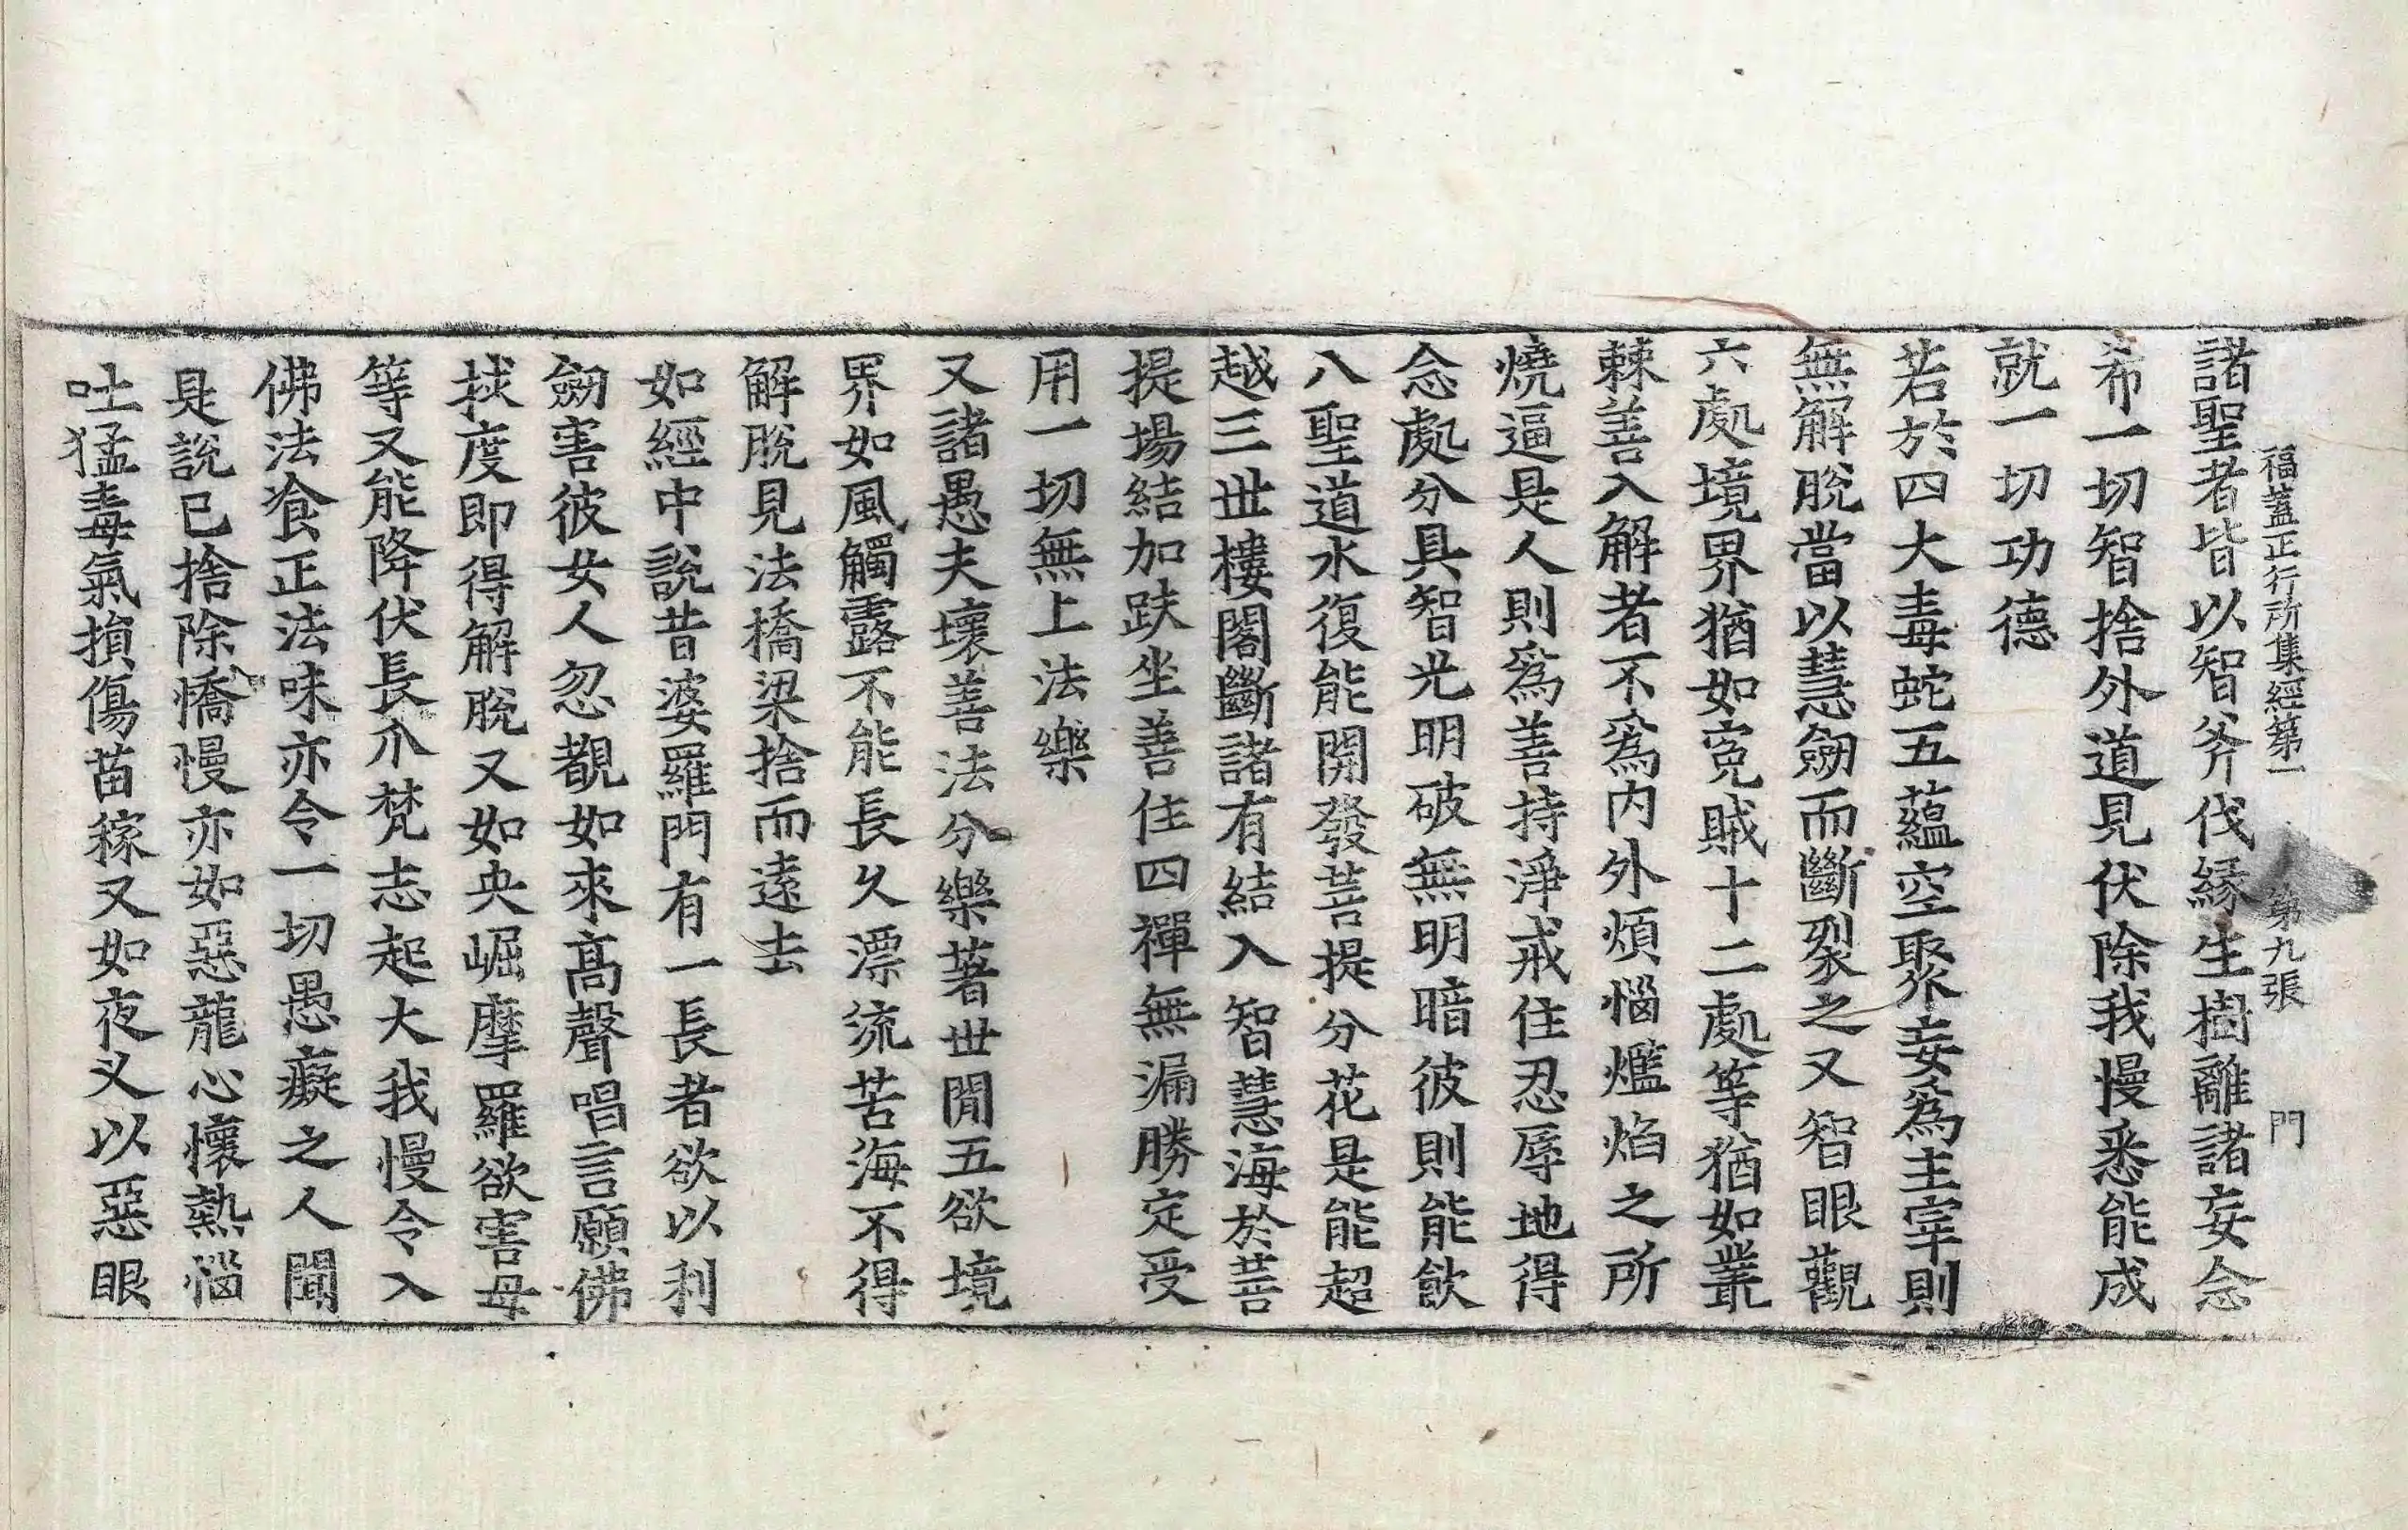 福蓋正行所集經第一 第九張 門
諸聖者皆以智斧伐緣生樹離諸妄念
希一切智捨外道見伏除我慢悉能成
就一切功德
若於四大毒蛇五蘊空聚妄爲主宰則
無解脫當以慧劒而斷裂之又智眼觀
六處境界猶如寃賊十二處等猶如叢
棘善入解者不爲内外煩惱爁焰之所
燒逼是人則爲善持淨戒住忍辱地得
念處分具智光明破無明暗彼則能飮
八聖道水復能開發菩提分花是能超
越三世樓閣斷諸有結入智慧海於菩
提場結加趺坐善住四禪無漏勝定受
用一切無上法樂
又諸愚夫壞善法分樂著世間五欲境
界如風觸露不能長久漂流苦海不得
解脫見法橋梁捨而遠去
如經中說昔婆羅門有一長者欲以利
劒害彼女人忽覩如來高聲唱言願佛
拔度即得解脫又如央崛摩羅欲害母
等又能降伏長爪梵志起大我慢令入
佛法飡正法味亦令一切愚癡之人聞
是說已捨除憍慢亦如惡龍心懷熱惱
吐猛毒氣損傷苗稼又如夜叉以惡眼